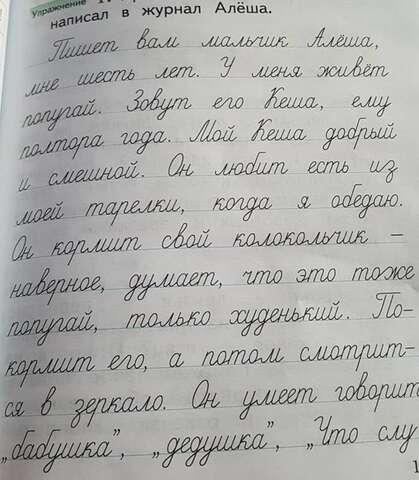 Упражнение
написал в журнал Алёша.
Пишет вам мальчик Алёша,
мне шесть лет. У меня живёт
попугай. Зовут его Кеша, ему
полтора года. Мой Кеша добрый
и смешной. Он любит есть из
моей тарелки, когда я обедаю.
Он кормит свой колокольчик –
наверное, думает, что это тоже
попугай, только худенький. По-
кормит его, а потом смотрит-
ся в зеркало. Он умеет говорит
„бабушка”, „дедушка”, „Что слу
1